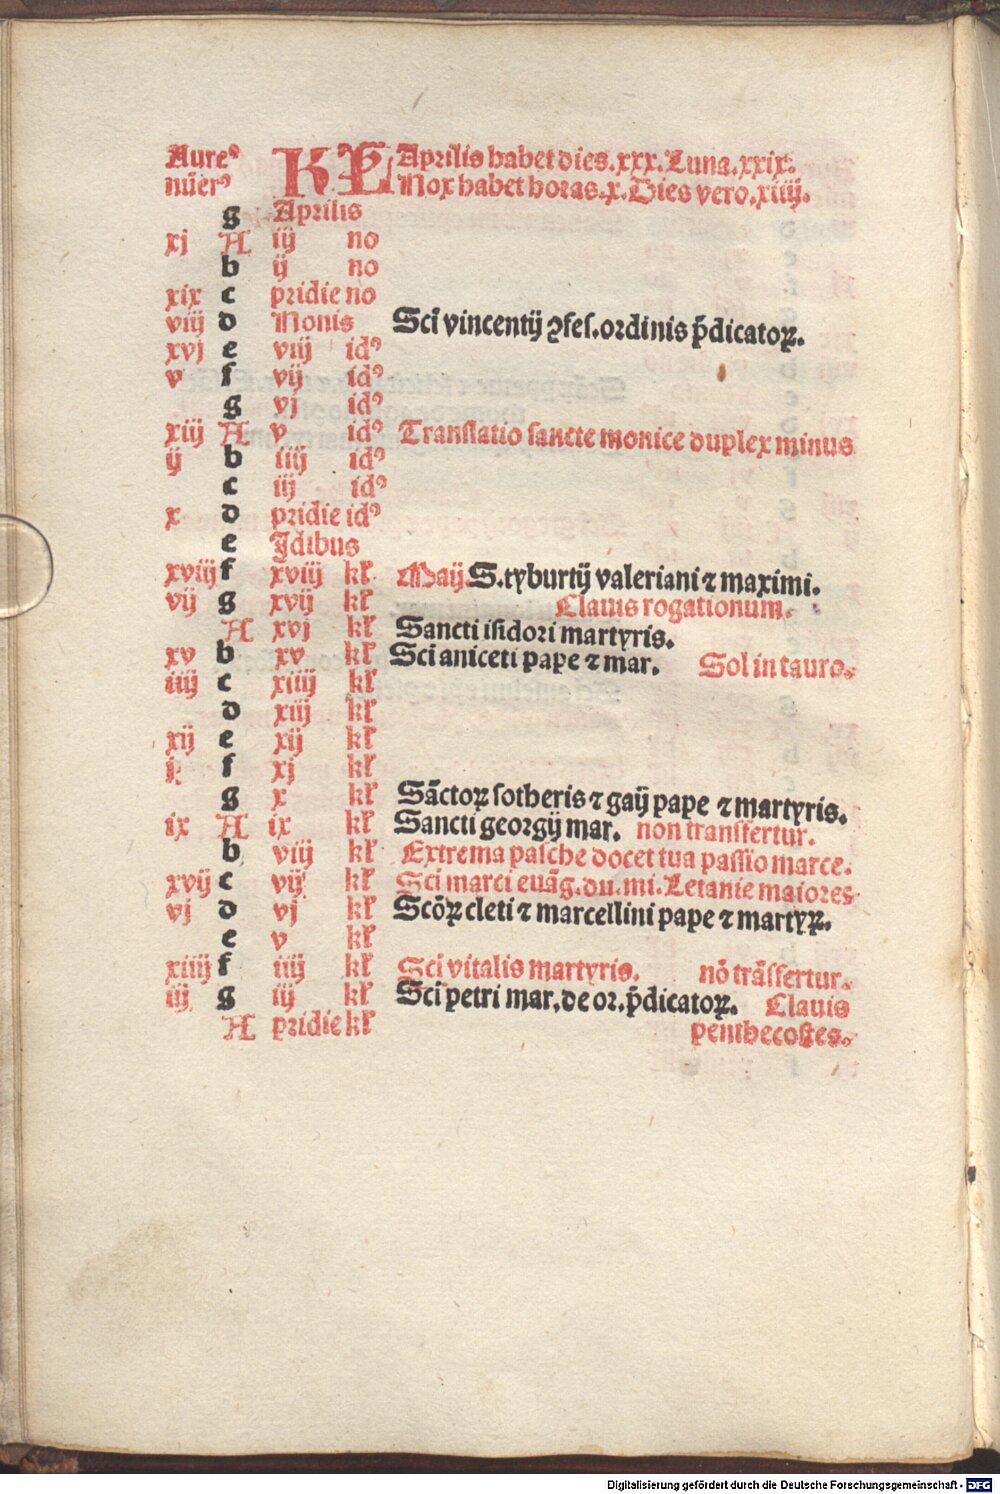 Aureꝰ KL Aprilis habet dies.xxx.Luna.xxix.
nūerꝰ Nox habet horas.x.Dies vero.xiiij.
g Aprilis
xj A iij no
b ij no
xix c pridie no
viij d Nonis Sci vincentij ꝯfes.ordinis p̄dicatoꝝ.
xvj e viij idꝰ
v f vij idꝰ
g vj idꝰ
xiij A v idꝰ Translatio sancte monice duplex minus
ij b iiij idꝰ
c iij idꝰ
x d pridie idꝰ
e Idibus
xviij f xviij kl. Maij.S.tyburtij valeriani ⁊ maximi.
vij g xvij kl Clauis rogationum.
A xvj kl Sancti isidori martyris.
xv b xv kl Sci aniceti pape ⁊ mar. Sol in tauro.
iiij c xiiij kl
d xiij kl
xij e xij kl
j f xj kl
g x kl Sāctoꝝ sotheris ⁊ gaij pape ⁊ martyris.
ix A ix kl Sancti georgij mar. non transfertur.
b viij kl Extrema pasche docet tua passio marce.
xvij c vij kl Sci marci euāg.du.mi.Letanie maiores
vj d vj kl Scōꝝ cleti ⁊ marcellini pape ⁊ martyꝝ.
e v kl
xiiij f iiij kl Sci vitalis martyris. nō trāsfertur.
iij g iij kl Sci petri mar.de or.p̄dicatoꝝ. Clauis
A pridie kl penthecostes.
Digitalisierung gefördert durch die Deutsche Forschungsgemeinschaft - DFG